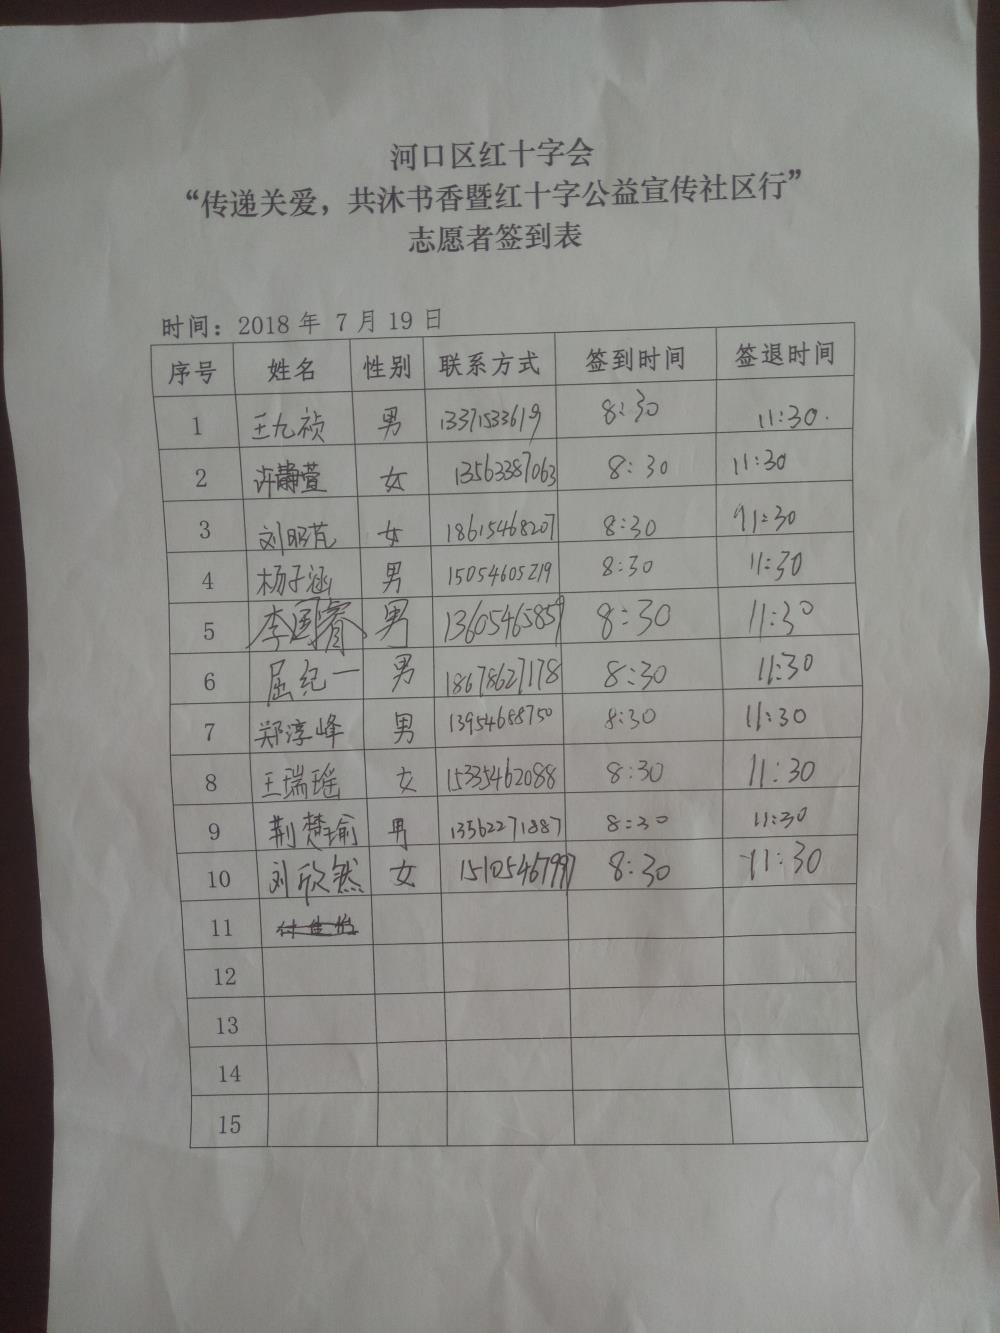 河口区红十字会
“传递关爱，共沐书香暨红十字公益宣传社区行”
志愿者签到表
时间：2018 年 7 月 19 日
序号 姓名 性别 联系方式 签到时间 签退时间
1 王九祯 男 13371533619 8:30 11:30.
2 许静萱 女 13563387063 8:30 11:30
3 刘昭芃 女 18615468207 8:30 11:30
4 杨子涵 男 15054605219 8:30 11:30
5 李国睿 男 13605465859 8:30 11:30
6 屈纪一 男 18678627178 8:30 11:30
7 郑淳峰 男 13954688750 8:30 11:30
8 王瑞瑶 女 15335462088 8:30 11:30
9 荆楚瑜 男 13562271887 8:30 11:30
10 刘欣然 女 15105467997 8:30 11:30
11
12
13
14
15